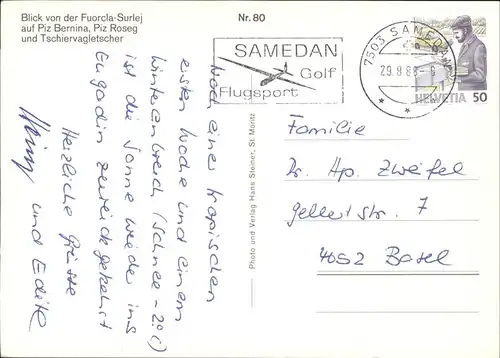 Blick von der Fuorcla-Surlej
auf Piz Bernina, Piz Roseg
und Tschiervagletscher
Nr. 80
SAMEDAN
Golf
Flugsport
7503 SAMEDAN
29.8.88-9
HELVETIA 50
Nach einer tropischen
ersten Woche und einem
Wintereinbruch (Schnee -2°!)
ist die Sonne wieder ins
Engadin zurückgekehrt
Herzliche Grüsse
und Edith
Photo und Verlag Hans Steiner, St. Moritz
Familie
Dr. Hp. Zweifel
Gellertstr. 7
4052 Basel